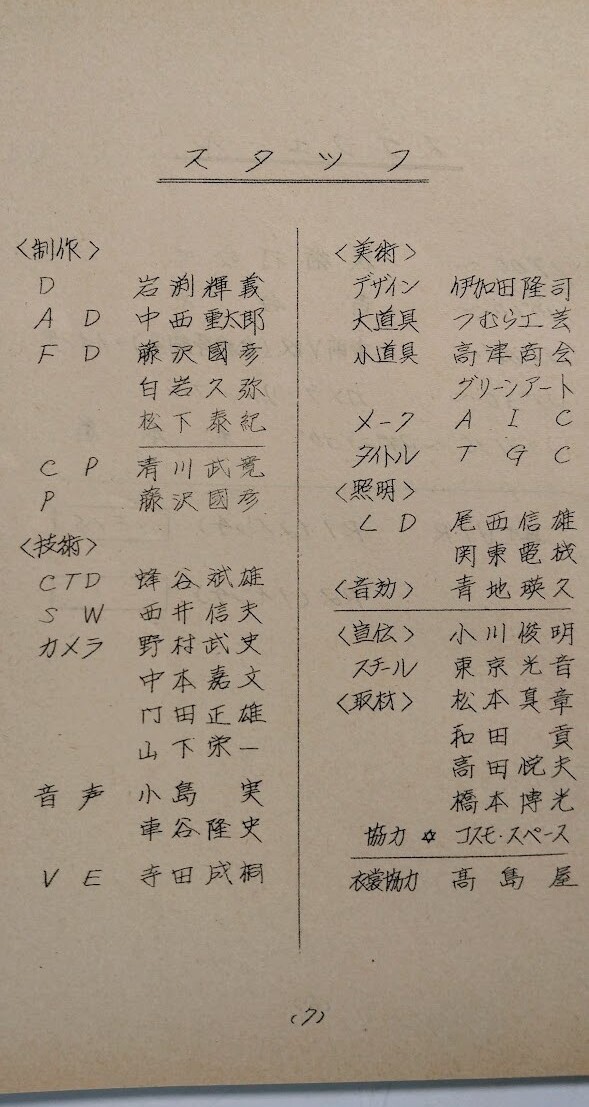 スタッフ
〈制作〉
D 岩渕輝義
A D 中西重太郎
F D 藤沢國彦
白岩久弥
松下泰紀
C P 清川武寛
P 藤沢國彦
〈技術〉
CTD 蜂谷斌雄
S W 西井信夫
カメラ 野村武史
中本嘉文
门田正雄
山下栄一
音声 小島 実
車谷隆史
V E 寺田成桐
〈美術〉
デザイン 伊加田隆司
大道具 つむら工芸
小道具 高津商会
グリーンアート
メーク A I C
タイトル T G C
〈照明〉
L D 尾西信雄
関東電械
〈音効〉 青地瑛久
〈宣伝〉 小川俊明
スチール 東京光音
〈取材〉 松本真章
和田 貢
高田悦夫
橋本博光
協力 ✡ コスモ・スペース
衣裳協力 髙島屋
(7)